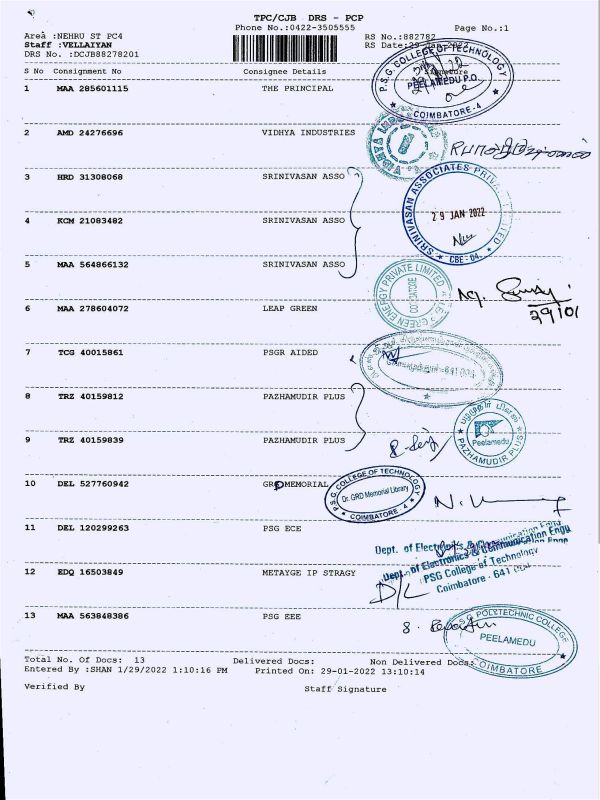 TPC/CJB DRS - PCP
Phone No.:0422-3505555
Page No.:1
Area :NEHRU ST PC4
Staff :VELLAIYAN
DRS No. :DCJB88278201
RS No.:882782
RS Date:29 Jan 2022
S No Consignment No Consignee Details Signature
1 MAA 285601115 THE PRINCIPAL
P.S.G. COLLEGE OF TECHNOLOGY
PEELAMEDU P.O.
COIMBATORE - 4
2 AMD 24276696 VIDHYA INDUSTRIES
3 HRD 31308068 SRINIVASAN ASSO
SRINIVASAN ASSOCIATES PRIVATE LIMITED
29 JAN 2022
CBE - 04.
4 KCM 21083482 SRINIVASAN ASSO
5 MAA 564866132 SRINIVASAN ASSO
GREEN ENERGY PRIVATE LIMITED
COIMBATORE
6 MAA 278604072 LEAP GREEN
29/01
7 TCG 40015861 PSGR AIDED
641 004
8 TRZ 40159812 PAZHAMUDIR PLUS
பழமுதிர் பிளஸ்
Peelamedu
PAZHAMUDIR PLUS
9 TRZ 40159839 PAZHAMUDIR PLUS
10 DEL 527760942 GRD MEMORIAL
P.S.G. COLLEGE OF TECHNOLOGY
Dr. GRD Memorial Library
COIMBATORE - 4
11 DEL 120299263 PSG ECE
Dept. of Electronics & Communication Engg
Dept. of Electronics & Communication Engg
PSG College of Technology
Coimbatore - 641 004
12 EDQ 16503849 METAYGE IP STRAGY
13 MAA 563848386 PSG EEE
PSG POLYTECHNIC COLLEGE
PEELAMEDU
COIMBATORE
Total No. Of Docs: 13 Delivered Docs: Non Delivered Docs:
Entered By :SHAN 1/29/2022 1:10:16 PM Printed On: 29-01-2022 13:10:14
Verified By Staff Signature